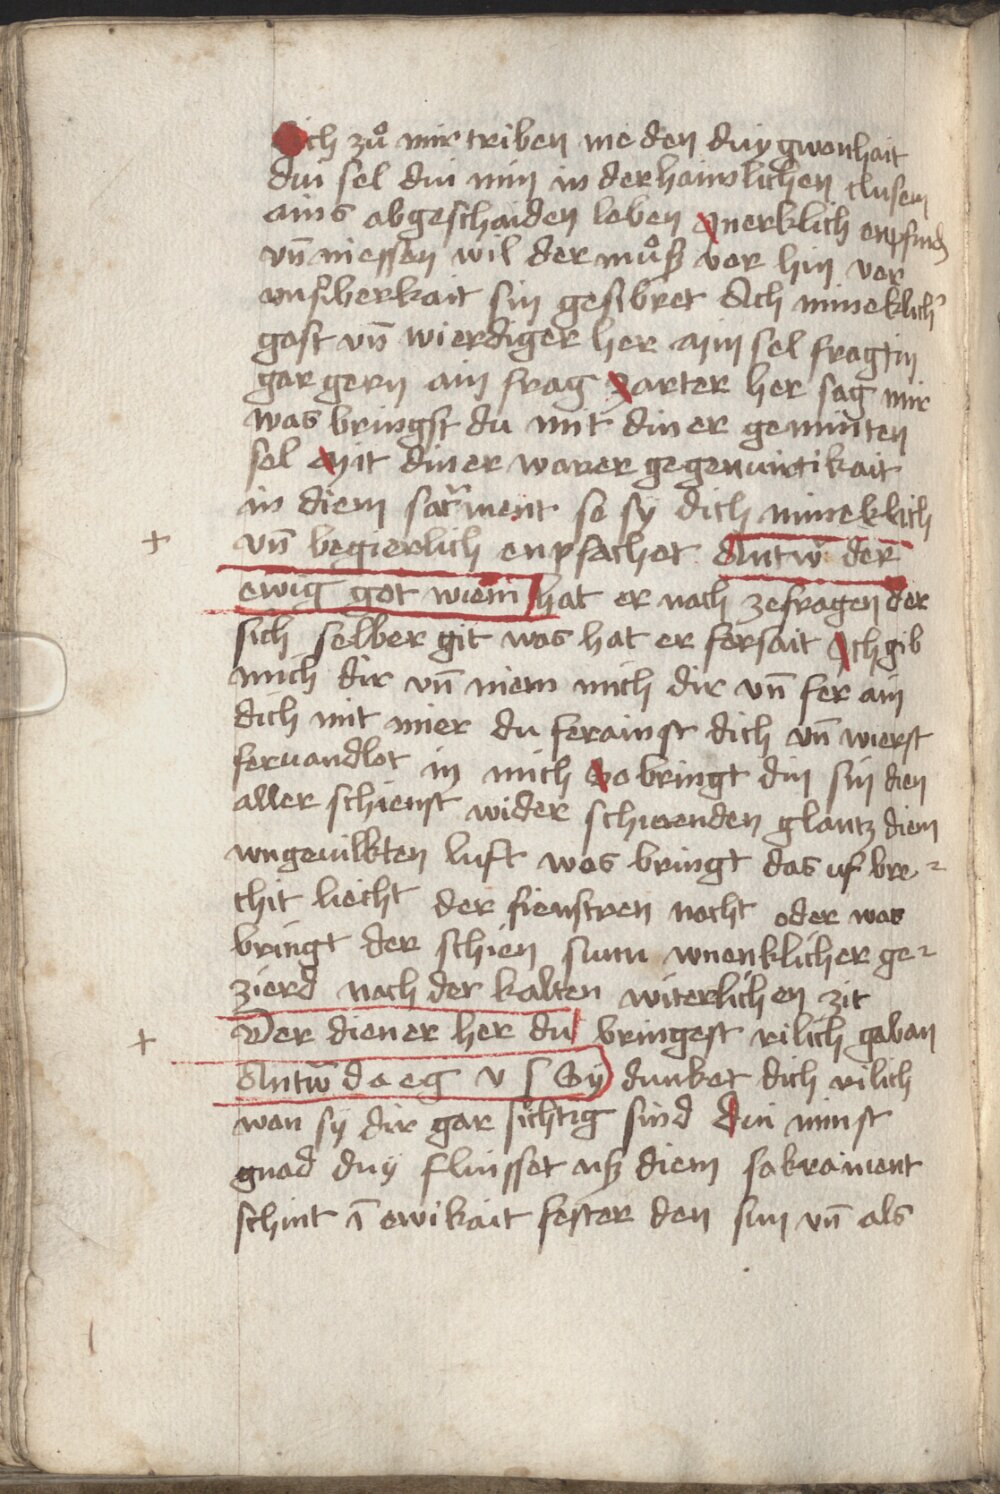 dich zuͦ mir triben me den duy gwonhait
dui sel dui min in der haimlichen clusen
ains abgeschaiden leben Merklich enpfinden
vn̄ niessen wil der muͦß vor hin vor
unsuberkait sin gesibret Ach mineklichʼ
gast vn̄ wierdiger her min sel fragtin
gar gern ain frag Zarter her sag mir
was bringst du mit diner geminten
sel Mit diner warer gegenuirtikait
in diem sacrament so sy dich mineklich
vn̄ begierlich enpfachet Antw̄ der
ewig got wiem hat er noch zefragen der
sich selber git was hat er fersait Ich gib
mich dir vn̄ niem mich dir vn̄ fer ain
dich mit mier du ferainst dich vn̄ wierst
feruandlot in mich So bringt din sin dien
aller schienst wider schinenden glantz diem
ungeuilkten luft was bringt das uf bre-
chit liecht der fienstren nacht oder was
bringt der schien sumi wnenklicher ge-
zierd nach der kalten witerlichen zit
Der diener her du bringest rilich gaban
Antw̄ d e e g v s Sy dunket dich rilich
wan sy dir gar sichtig sind dui minst
gnad duy fluisset uß diem sakrament
schint ī ewikait fester den sun vn̄ als